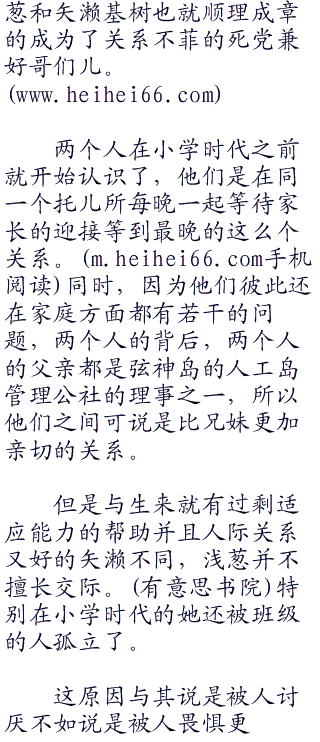 葱和矢濑基树也就顺理成章
的成为了关系不菲的死党兼
好哥们儿。
(www.heihei66.com)
两个人在小学时代之前
就开始认识了，他们是在同
一个托儿所每晚一起等待家
长的迎接等到最晚的这么个
关系。(m.heihei66.com手机
阅读)同时，因为他们彼此还
在家庭方面都有若干的问
题，两个人的背后，两个人
的父亲都是弦神岛的人工岛
管理公社的理事之一，所以
他们之间可说是比兄妹更加
亲切的关系。
但是与生来就有过剩适
应能力的帮助并且人际关系
又好的矢濑不同，浅葱并不
擅长交际。(有意思书院)特
别在小学时代的她还被班级
的人孤立了。
这原因与其说是被人讨
厌不如说是被人畏惧更